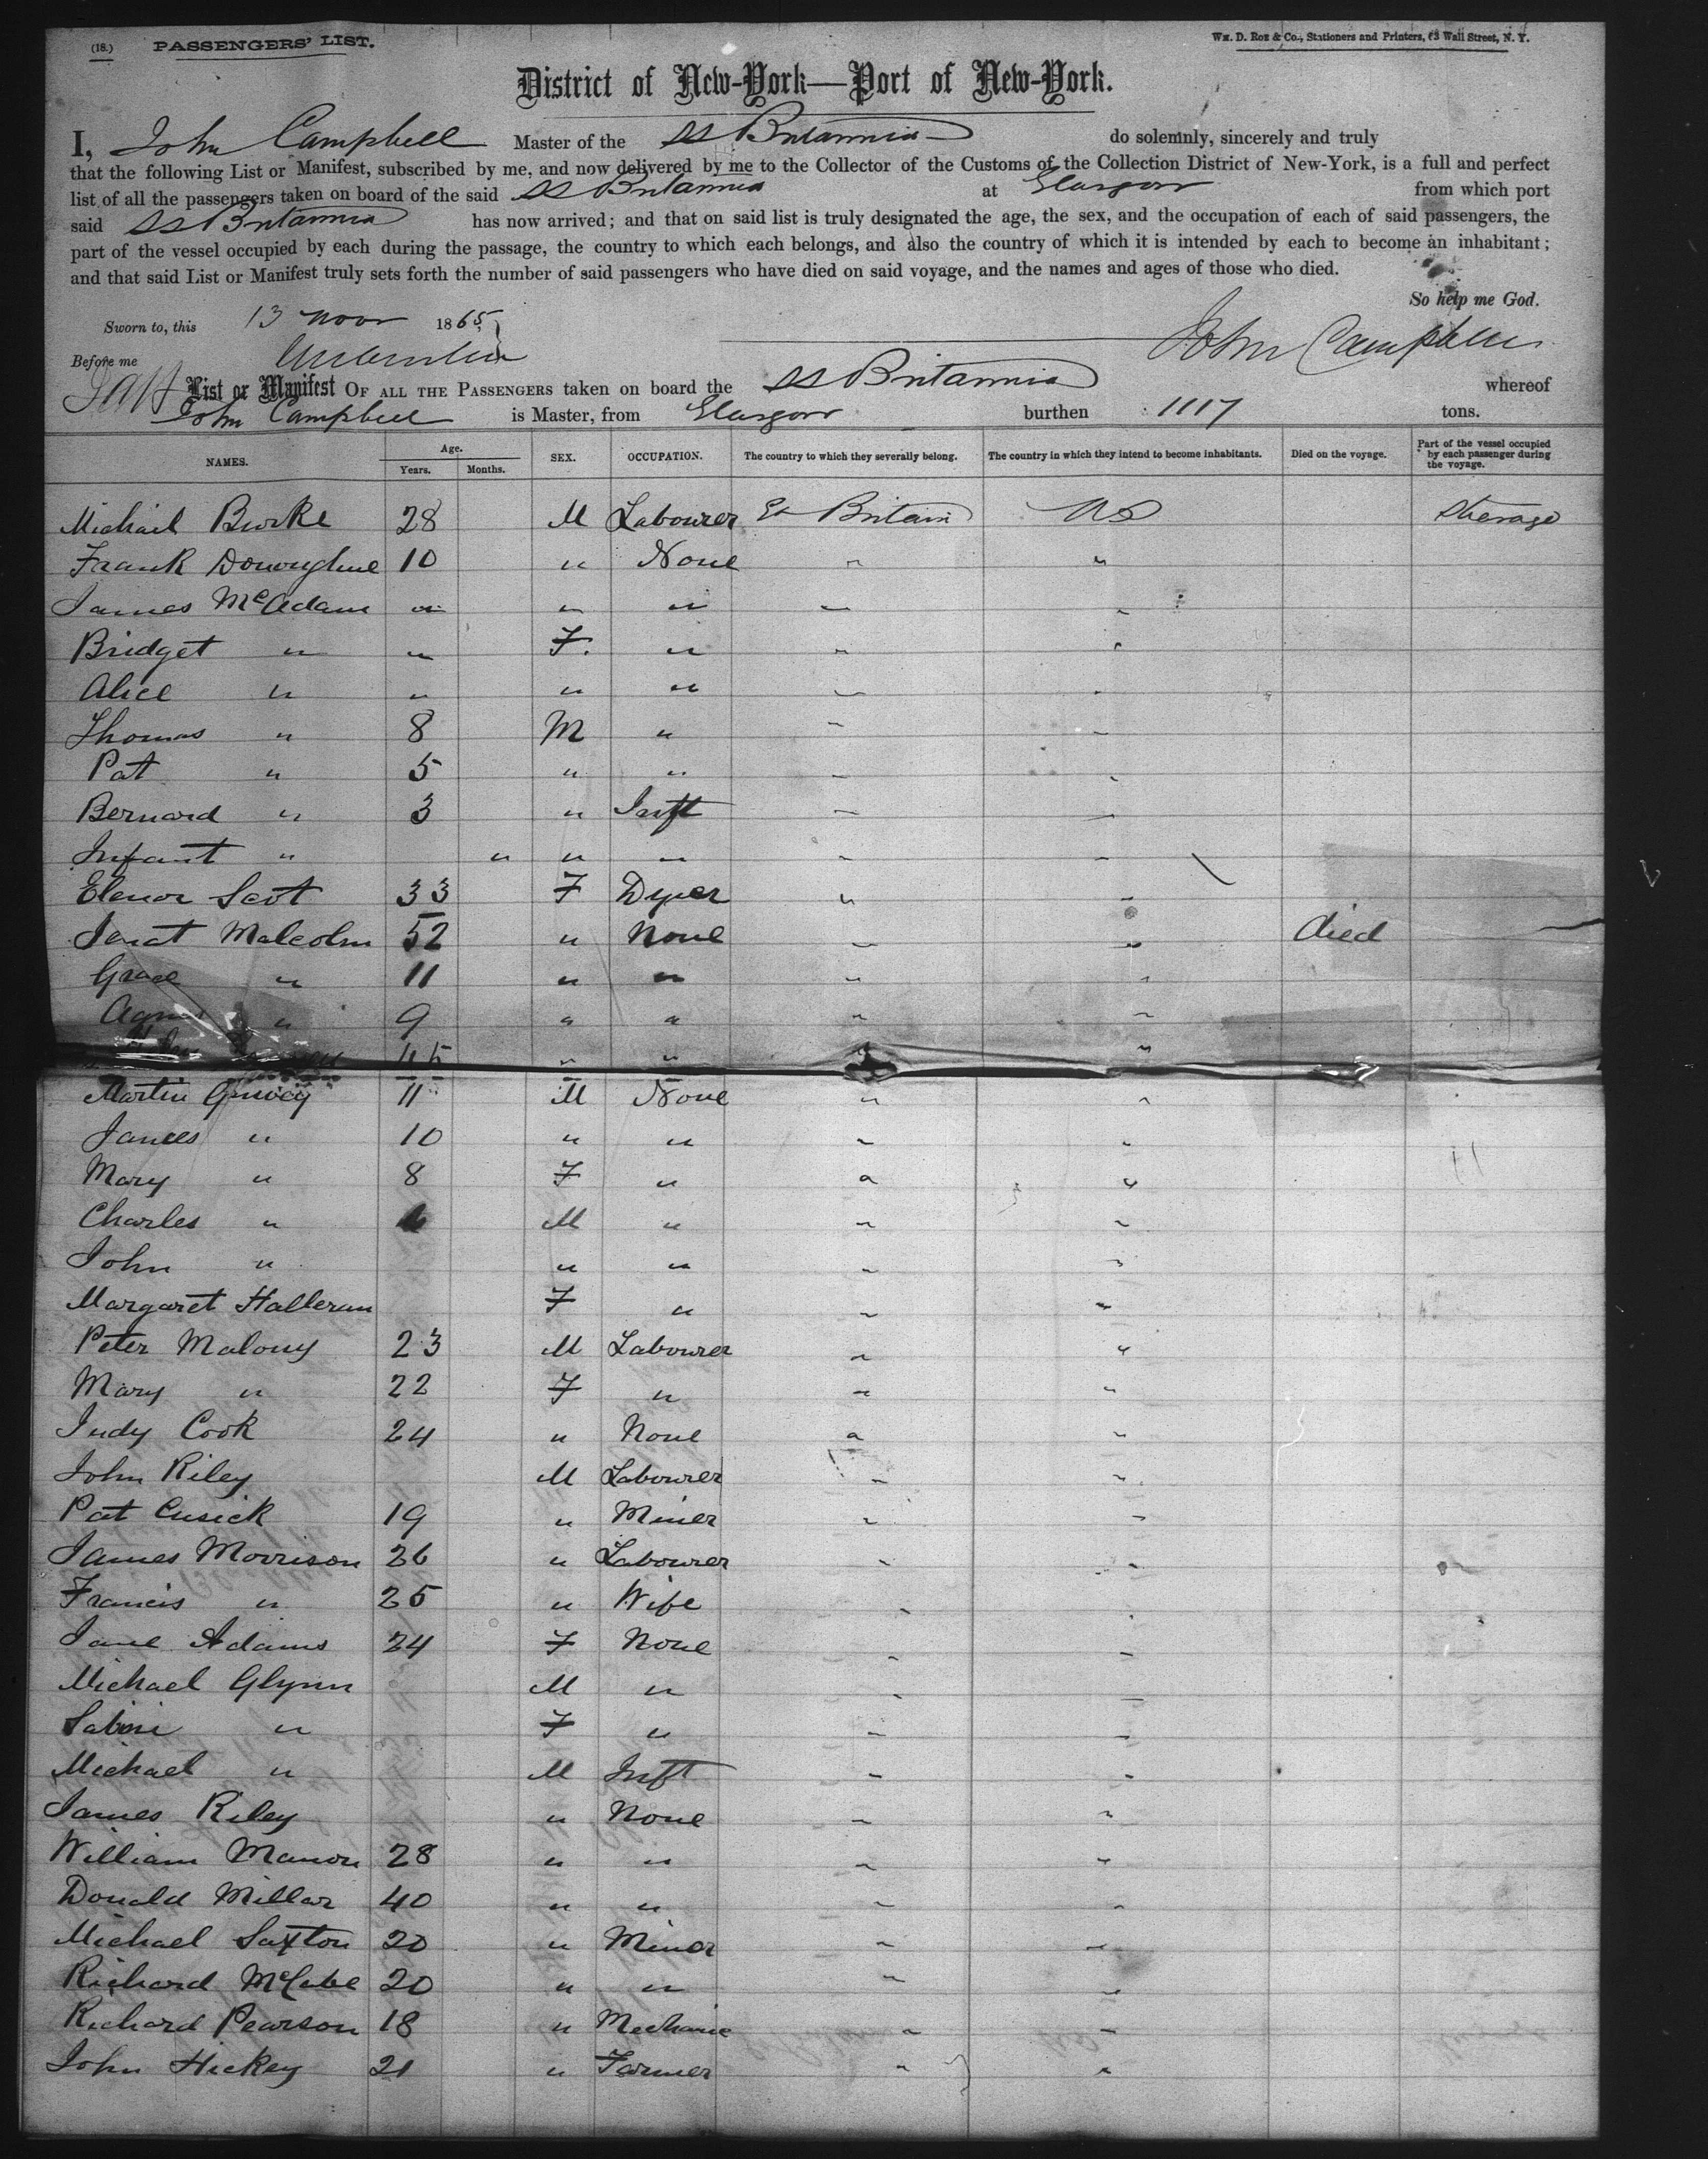 (18.) PASSENGERS' LIST. Wm. D. Roe & Co., Stationers and Printers, 63 Wall Street, N. Y.
District of New-York—Port of New-York.
I, John Campbell Master of the SS Britannia do solemnly, sincerely and truly
that the following List or Manifest, subscribed by me, and now delivered by me to the Collector of the Customs of the Collection District of New-York, is a full and perfect
list of all the passengers taken on board of the said SS Britannia at Glasgow from which port
said SS Britannia has now arrived; and that on said list is truly designated the age, the sex, and the occupation of each of said passengers, the
part of the vessel occupied by each during the passage, the country to which each belongs, and also the country of which it is intended by each to become an inhabitant;
and that said List or Manifest truly sets forth the number of said passengers who have died on said voyage, and the names and ages of those who died.
So help me God.
Sworn to, this 13 Novr 1865
John Campbell
Before me
List or Manifest OF ALL THE PASSENGERS taken on board the SS Britannia whereof
John Campbell is Master, from Glasgow burthen 1117 tons.
NAMES. Age. Years. Months. SEX. OCCUPATION. The country to which they severally belong. The country in which they intend to become inhabitants. Died on the voyage. Part of the vessel occupied by each passenger during the voyage.
Michail Burke 28 M Labourer Gt Britain US Steerage
Frank Donoughue 10 " None " "
James McAdam " " " " "
Bridget " " F. " " "
Alice " " " " " "
Thomas " 8 M " " "
Pat " 5 " " " "
Bernard " 3 " Inft " "
Infant " " " " " "
Elenor Scot 33 F Dyer " "
Janat Malcolm 52 " None " " died
Grace " 11 " " " "
Agnes " 9 " " " "
45 " " " "
Martin 11 M None " "
James " 10 " " " "
Mary " 8 F " " "
Charles " M " " "
John " " " " "
Margaret Halleran F " " "
Peter Malony 23 M Labourer " "
Mary " 22 F " " "
Judy Cook 24 " None " "
John Riley M Labourer " "
Pat Cusick 19 " Miner " "
James Morrison 26 " Labourer " "
Francis " 25 " Wife " "
Jane Adams 24 F None " "
Michael Glynn M " " "
Sabini " F " " "
Michael " M Inft " "
James Riley " None " "
William Manon 28 " " " "
Donald Millar 40 " " " "
Michael Saxton 20 " Miner " "
Richard McCabe 20 " " " "
Richard Pearson 18 " Mechanic " "
John Hickey 21 " Farmer " "